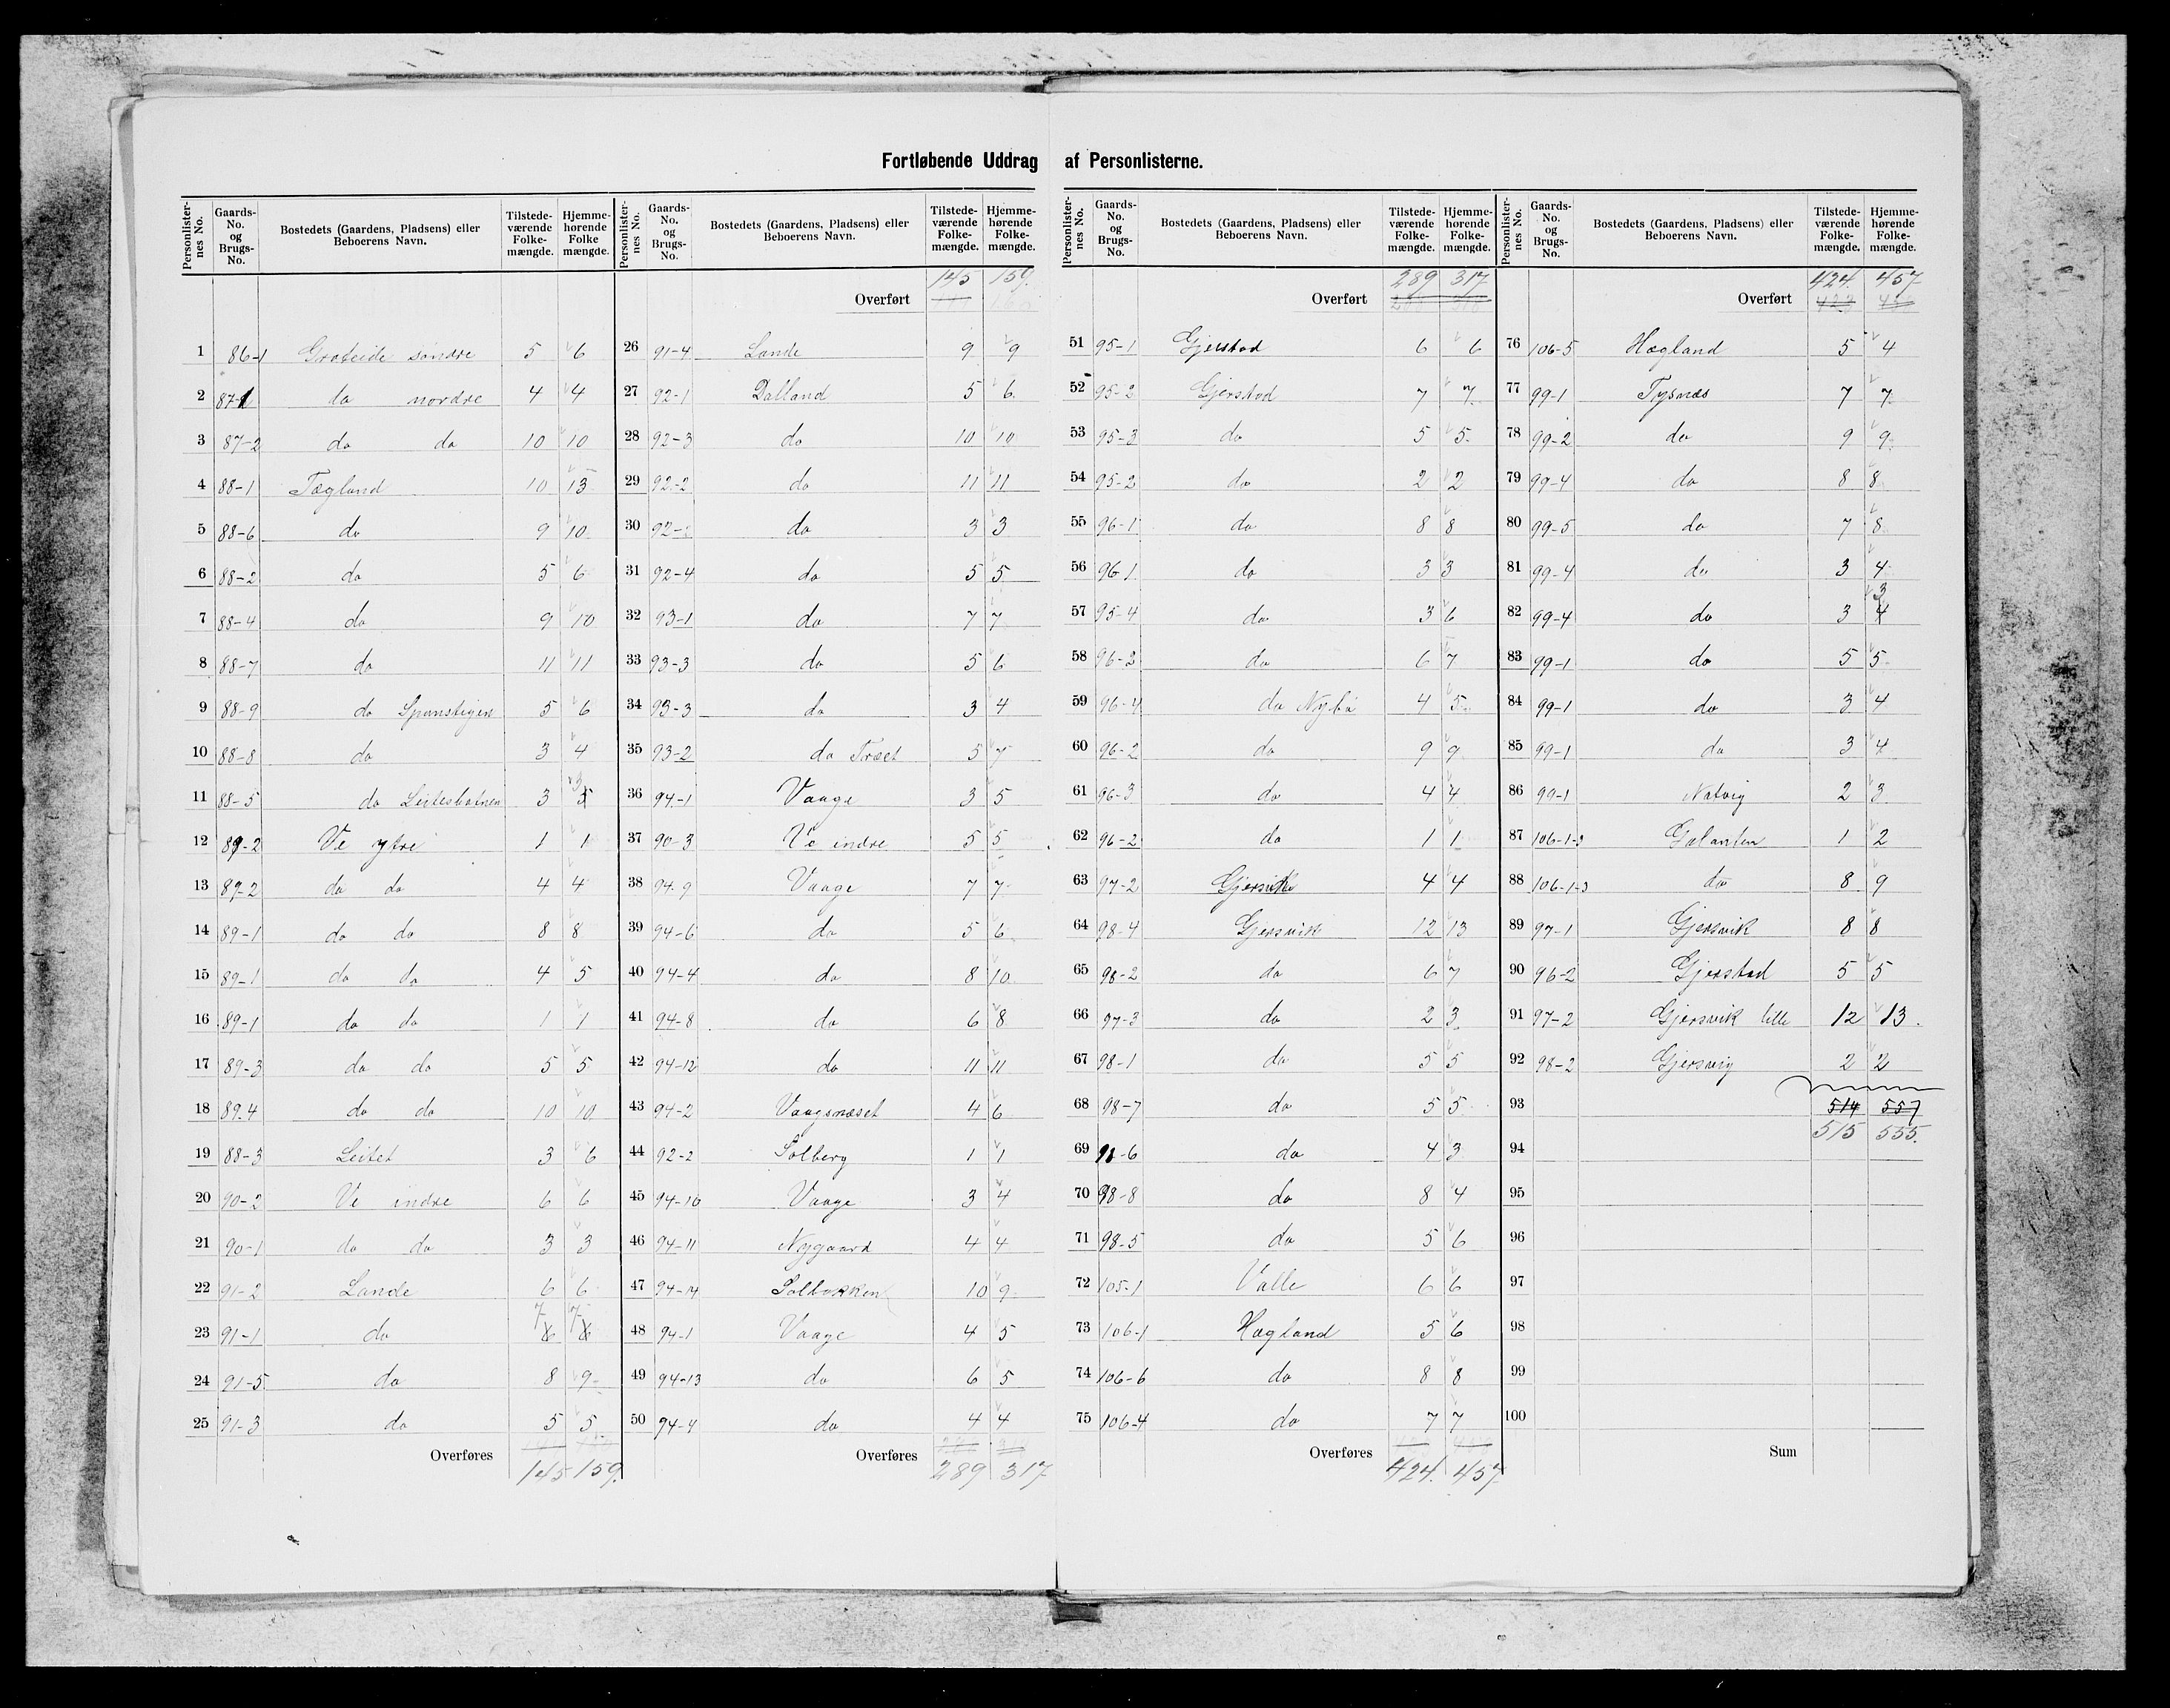 Fortløbende Uddrag af Personlisterne.
Personlister-nes No. Gaards-No. og Brugs-No. Bostedets (Gaardens, Pladsens) eller Beboerens Navn. Tilstede-værende Folke-mængde. Hjemme-hørende Folke mængde.
1 86-1 Groteide søndre 5 6
2 87-1 do nordre 4 4
3 87-2 do do 10 10
4 88-1 Tægland 10 13
5 88-6 do 9 10
6 88-2 do 5 6
7 88-4 do 9 10
8 88-7 do 11 11
9 88-9 do Spanstigen 5 6
10 88-8 do 3 4
11 88-5 do Leitesbotnen 3 3
12 89-2 Ve ytre 1 1
13 89-2 do do 4 4
14 89-1 do do 8 8
15 89-1 do do 4 5
16 89-1 do do 1 1
17 89-3 do do 5 5
18 89.4 do do 10 10
19 88-3 Leitet 3 6
20 90-2 Ve indre 6 6
21 90-1 do do 3 3
22 91-2 Lande 6 6
23 91-1 do 7 7
24 91-5 do 8 9
25 91-3 do 5 5
Overføres 145 159.
Personlister-nes No. Gaards-No. og Brugs-No. Bostedets (Gaardens, Pladsens) eller Beboerens Navn. Tilstede-værende Folke-mængde. Hjemme-hørende Folke-mængde.
Overført 145 159.
26 91-4 Lande 9 9
27 92-1 Dalland 5 6
28 92-3 do 10 10
29 92-2 do 11 11
30 92- do 3 3
31 92-4 do 5 5
32 93-1 do 7 7
33 93-3 do 5 6
34 93-3 do 3 4
35 93-2 do Træet 5 7
36 94-1 Vaage 3 5
37 90-3 Ve indre 5 5
38 94-9 Vaage 7 7
39 94-6 do 5 6
40 94-4 do 8 10
41 94-8 do 6 8
42 94-12 do 11 11
43 94-2 Vaagsnæset 4 6
44 92-2 Solberg 1 1
45 94-10 Vaage 3 4
46 94-11 Nygaard 4 4
47 94-14 Solbakken 10 9
48 94-1 Vaage 4 5
49 94-13 do 6 5
50 94-4 do 4 4
Overføres 289 317
Personlister-nes No. Gaards-No. og Brugs-No. Bostedets (Gaardens, Pladsens) eller Beboerens Navn. Tilstede-værende Folke-mængde. Hjemme-hørende Folke-mængde.
Overført 289 317
51 95-1 Gjerstad 6 6
52 95-2 Gjerstad 7 7
53 95-3 do 5 5
54 95-2 do 2 2
55 96-1 do 8 8
56 96 1 do 3 3
57 95-4 do 3 6
58 96-2 do 6 7
59 96-4 do Nybö 4 5
60 96-2 do 9 9
61 96-3 do 4 4
62 96-2 do 1 1
63 97-2 Gjersvik 4 4
64 98-4 Gjersvik 12 13
65 98-2 do 6 7
66 97-3 do 2 3
67 98-1 do 5 5
68 98-7 do 5 5
69 98-6 do 4 3
70 98-8 do 8 4
71 98-5 do 5 6
72 105-1 Valle 6 6
73 106-1 Hægland 5 6
74 106-6 do 8 8
75 106-4 do 7 7
Overføres 424. 457
Personlister-nes No. Gaards-No. og Brugs-No. Bostedets (Gaardens, Pladsens) eller Beboerens Navn. Tilstede-værende Folke-mængde. Hjemme-hørende Folke-mængde.
Overført 424. 457
76 106-5 Hægland 5 4
77 99-1 Tysnæs 7 7
78 99-2 do 9 9
79 99-4 do 8 8
80 99-5 do 7 8
81 99-4 do 3 4
82 99-4 do 3 3
83 99-1 do 5 5
84 99-1 do 3 4
85 99-1 do 3 4
86 99-1 Natvig 2 3
87 106-1-3 Galanten 1 2
88 106-1-3 do 8 9
89 97-1 Gjersvik 8 8
90 96-2 Gjerstad 5 5
91 97-2 Gjersvik lille 12 13
92 98-2 Gjersvig 2 2
93 514 557
94 515 555.
95
96
97
98
99
100
Sum